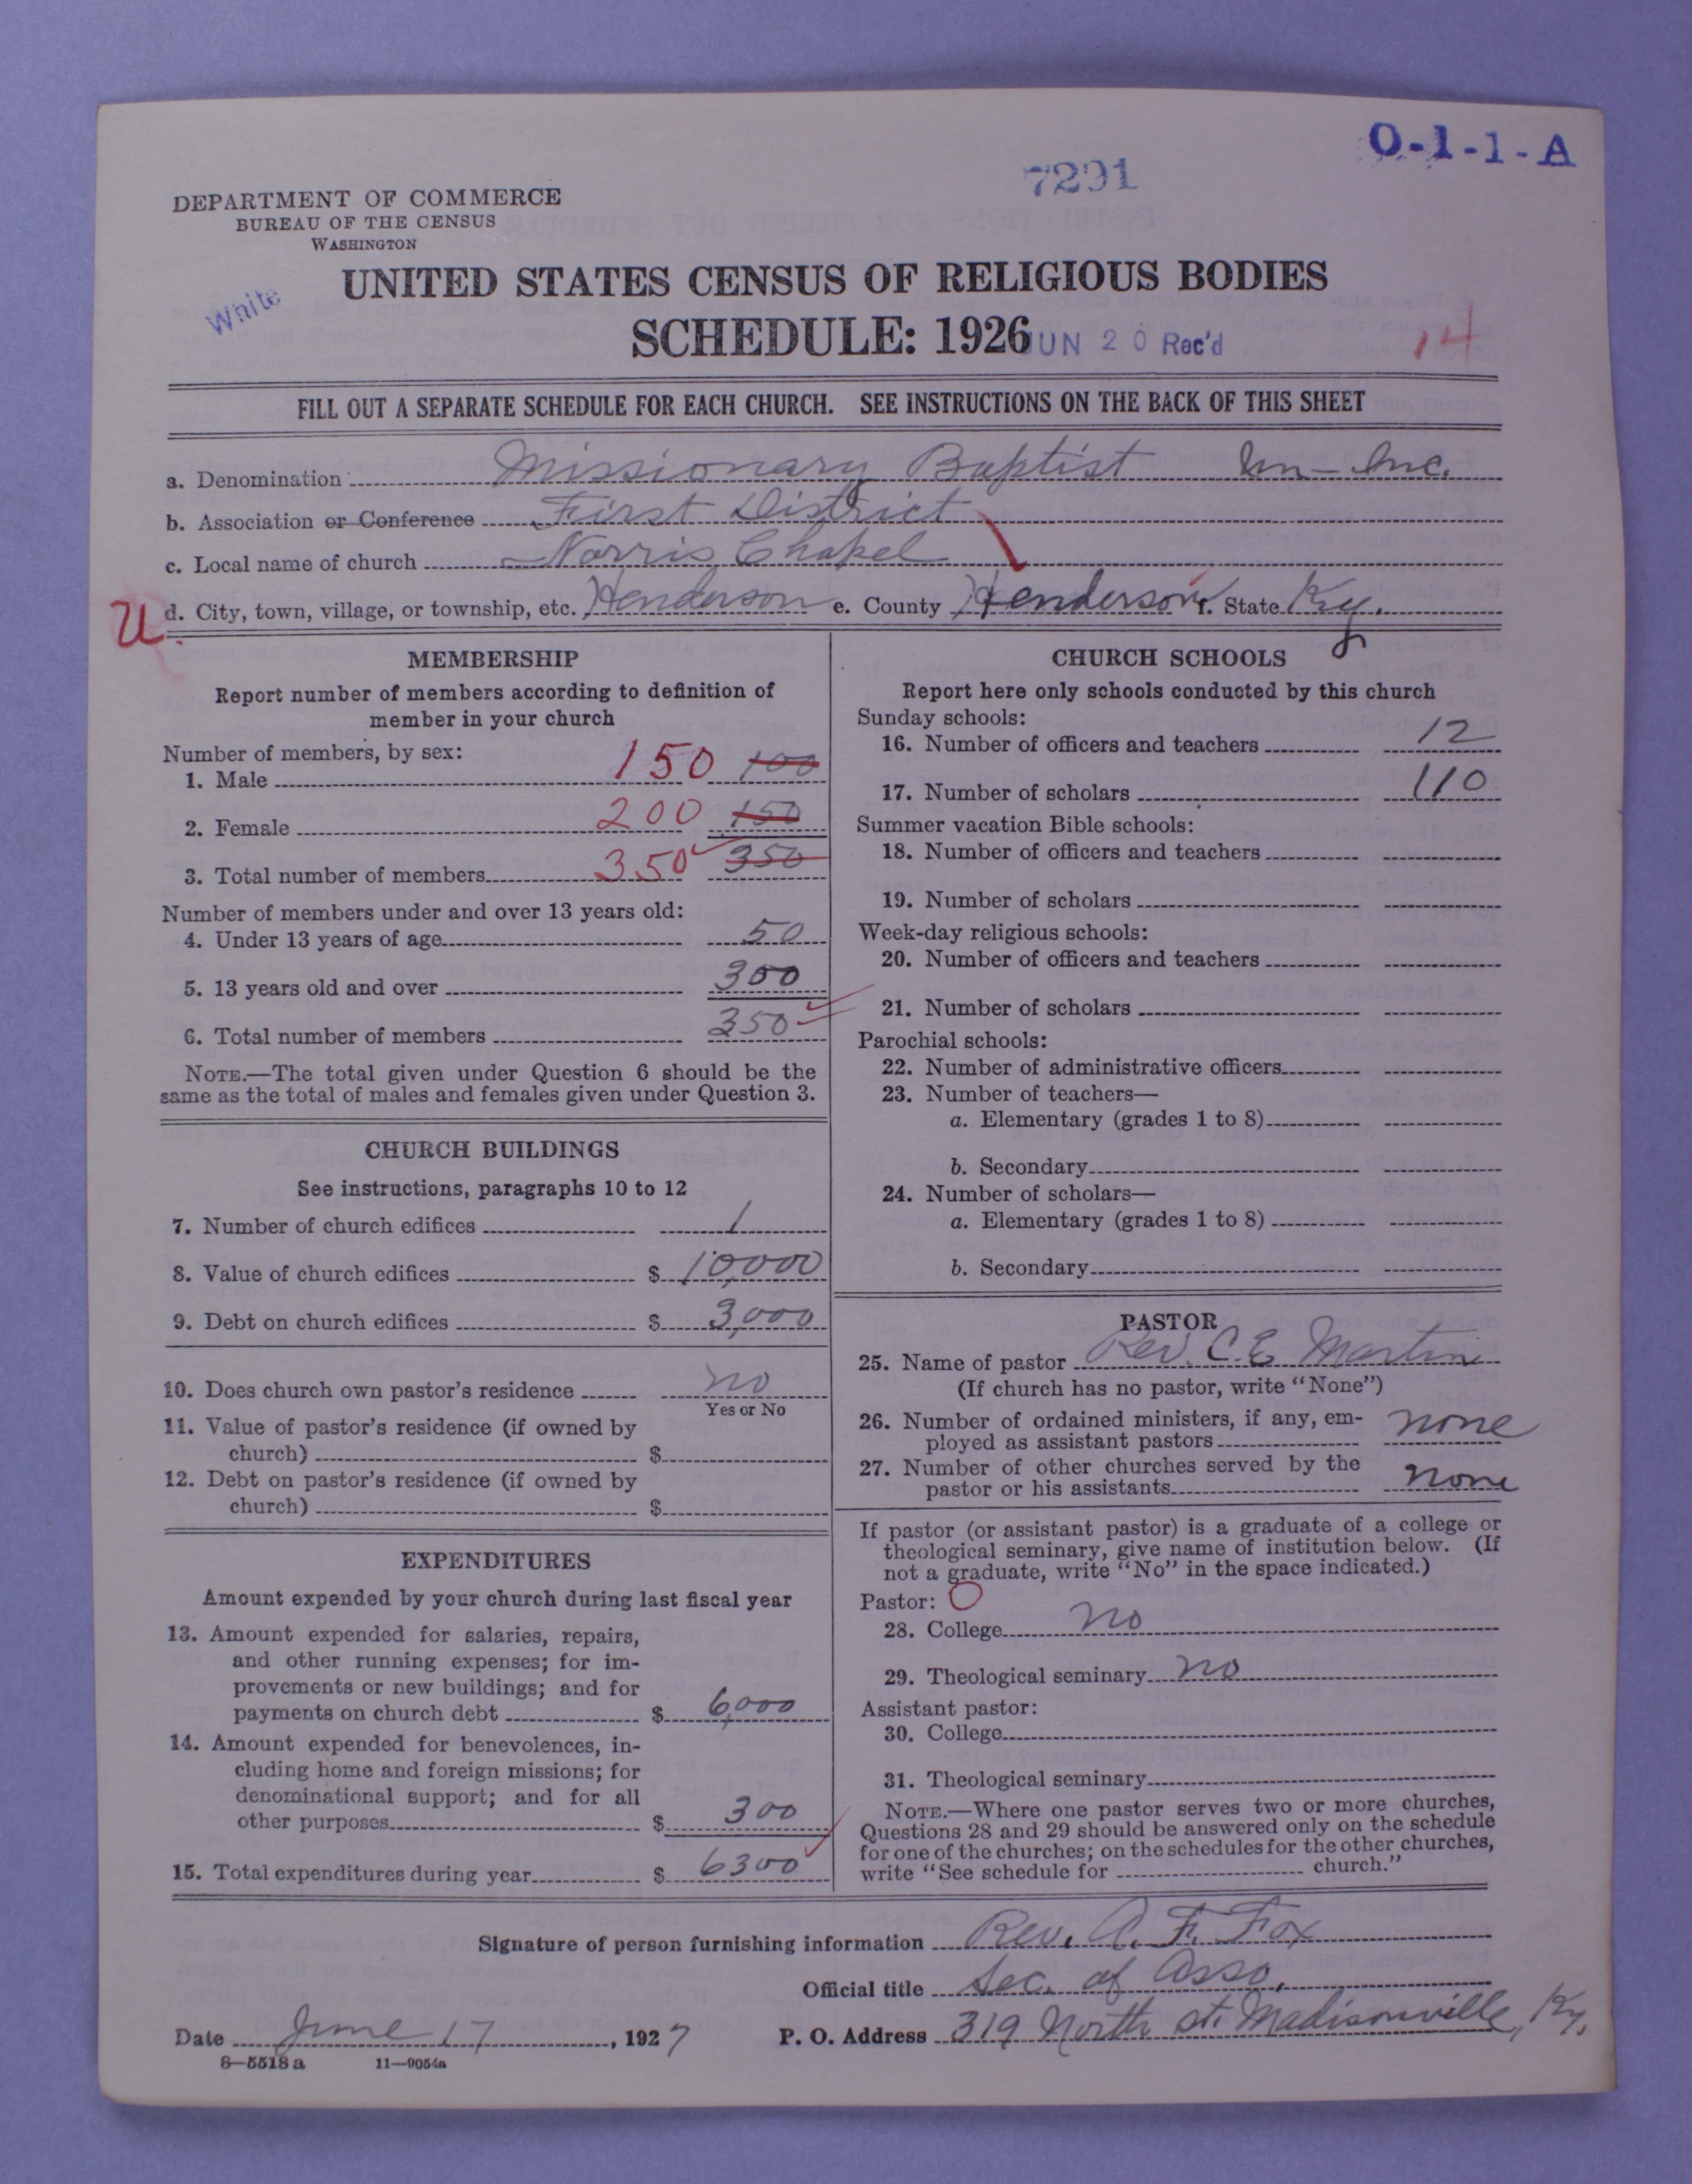 O-1-1-A
7291
DEPARTMENT OF COMMERCE
BUREAU OF THE CENSUS
WASHINGTON
White
UNITED STATES CENSUS OF RELIGIOUS BODIES
SCHEDULE: 1926
JUN 20 Rec'd
14
FILL OUT A SEPARATE SCHEDULE FOR EACH CHURCH. SEE INSTRUCTIONS ON THE BACK OF THIS SHEET
a. Denomination Missionary Baptist Un-Inc.
b. Association or Conference First District
c. Local name of church Norris Chapel
U d. City, town, village, or township, etc. Henderson e. County Henderson f. State Ky.
MEMBERSHIP
Report number of members according to definition of
member in your church
Number of members, by sex:
1. Male 150 100
2. Female 200 150
3. Total number of members 350 350
Number of members under and over 13 years old:
4. Under 13 years of age 50
5. 13 years old and over 300
6. Total number of members 350
NOTE.—The total given under Question 6 should be the
same as the total of males and females given under Question 3.
CHURCH BUILDINGS
See instructions, paragraphs 10 to 12
7. Number of church edifices 1
8. Value of church edifices $ 10,000
9. Debt on church edifices $ 3,000
10. Does church own pastor's residence no
Yes or No
11. Value of pastor's residence (if owned by
church) $
12. Debt on pastor's residence (if owned by
church) $
EXPENDITURES
Amount expended by your church during last fiscal year
13. Amount expended for salaries, repairs,
and other running expenses; for im-
provements or new buildings; and for
payments on church debt $ 6,000
14. Amount expended for benevolences, in-
cluding home and foreign missions; for
denominational support; and for all
other purposes $ 300
15. Total expenditures during year $ 6300
CHURCH SCHOOLS
Report here only schools conducted by this church
Sunday schools:
16. Number of officers and teachers 12
17. Number of scholars 110
Summer vacation Bible schools:
18. Number of officers and teachers
19. Number of scholars
Week-day religious schools:
20. Number of officers and teachers
21. Number of scholars
Parochial schools:
22. Number of administrative officers
23. Number of teachers—
a. Elementary (grades 1 to 8)
b. Secondary
24. Number of scholars—
a. Elementary (grades 1 to 8)
b. Secondary
PASTOR
25. Name of pastor Rev. C. E. Martin
(If church has no pastor, write "None")
26. Number of ordained ministers, if any, em-
ployed as assistant pastors none
27. Number of other churches served by the
pastor or his assistants none
If pastor (or assistant pastor) is a graduate of a college or
theological seminary, give name of institution below. (If
not a graduate, write "No" in the space indicated.)
Pastor: O
28. College no
29. Theological seminary no
Assistant pastor:
30. College
31. Theological seminary
NOTE.—Where one pastor serves two or more churches,
Questions 28 and 29 should be answered only on the schedule
for one of the churches; on the schedules for the other churches,
write "See schedule for church."
Signature of person furnishing information Rev. A. F. Fox
Official title Sec. of Asso.
Date June 17, 1927 P. O. Address 319 North st. Madisonville, Ky.
8—5518 a 11—9054a